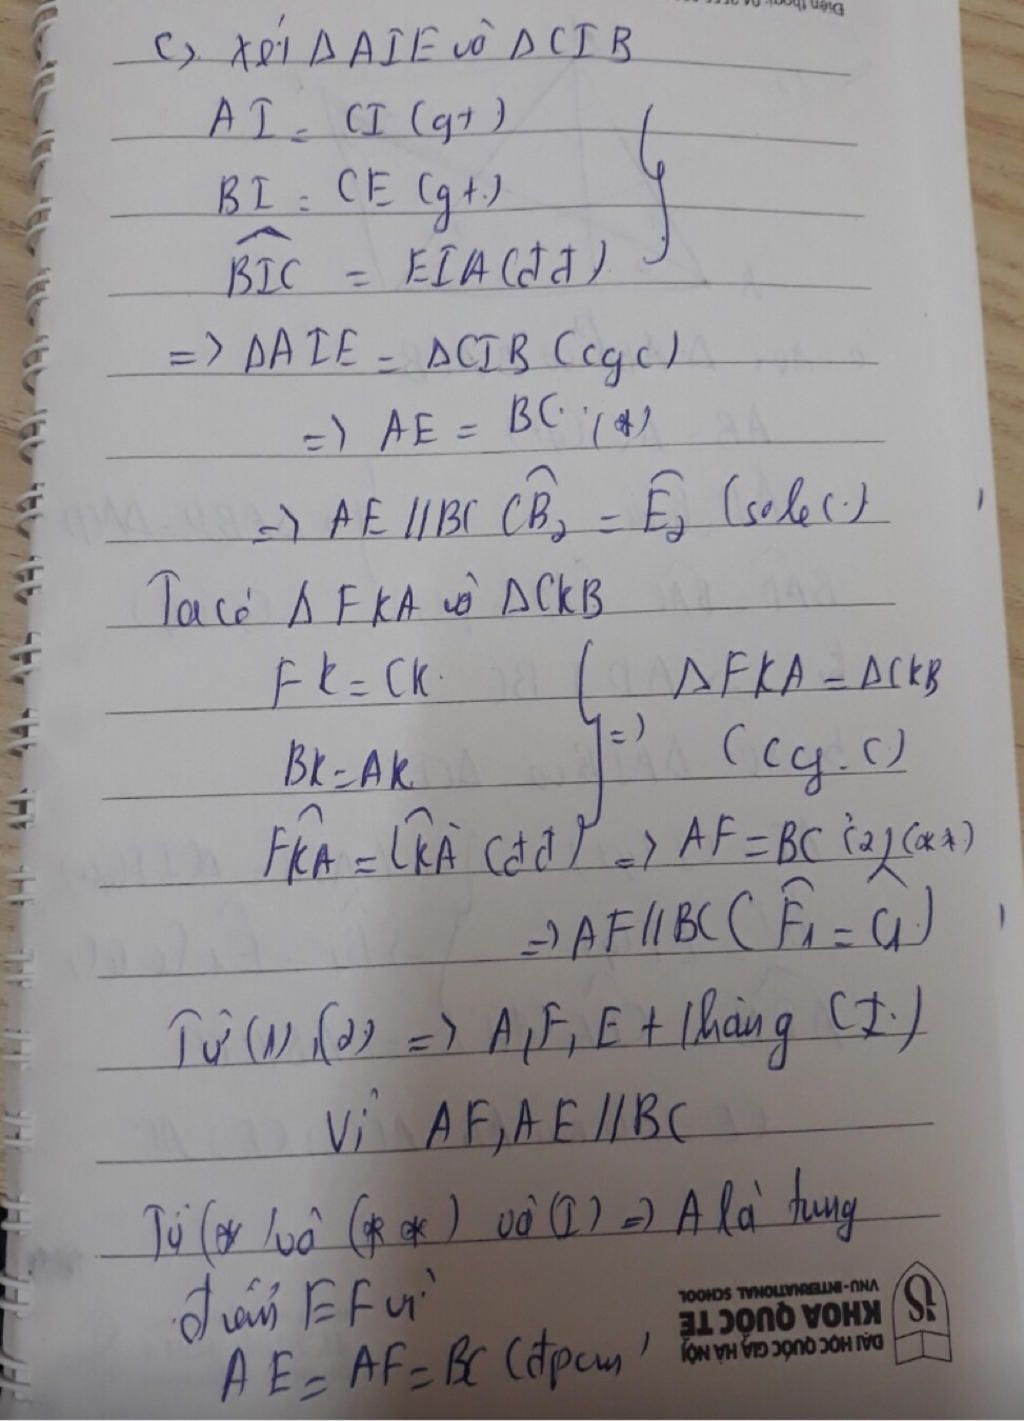 Điện thoại: 04 3555
c) Xét ΔAIE và ΔCIB
AI = CI (gt)
BI = CE (gt)
BIC = EIA (đđ)
=> ΔAIE = ΔCIB (cgc)
=> AE = BC (*)
=> AE // BC (B̂₂ = Ê₂ (sole)
Ta có ΔFKA và ΔCKB
FK = CK. ΔFKA = ΔCKB
BK = AK => (c.g.c)
FKA = CKA (đđ) => AF = BC (2) (**)
=> AF // BC (F̂₁ = Ĉ₁)
Từ (1), (2) => A, F, E thẳng (I.)
Vì AF, AE // BC
Từ (*) và (**) và (I) => A là trung
điểm EF vì
AE = AF = BC (đpcm)
ĐẠI HỌC QUỐC GIA HÀ NỘI
KHOA QUỐC TẾ
VNU-INTERNATIONAL SCHOOL
iS